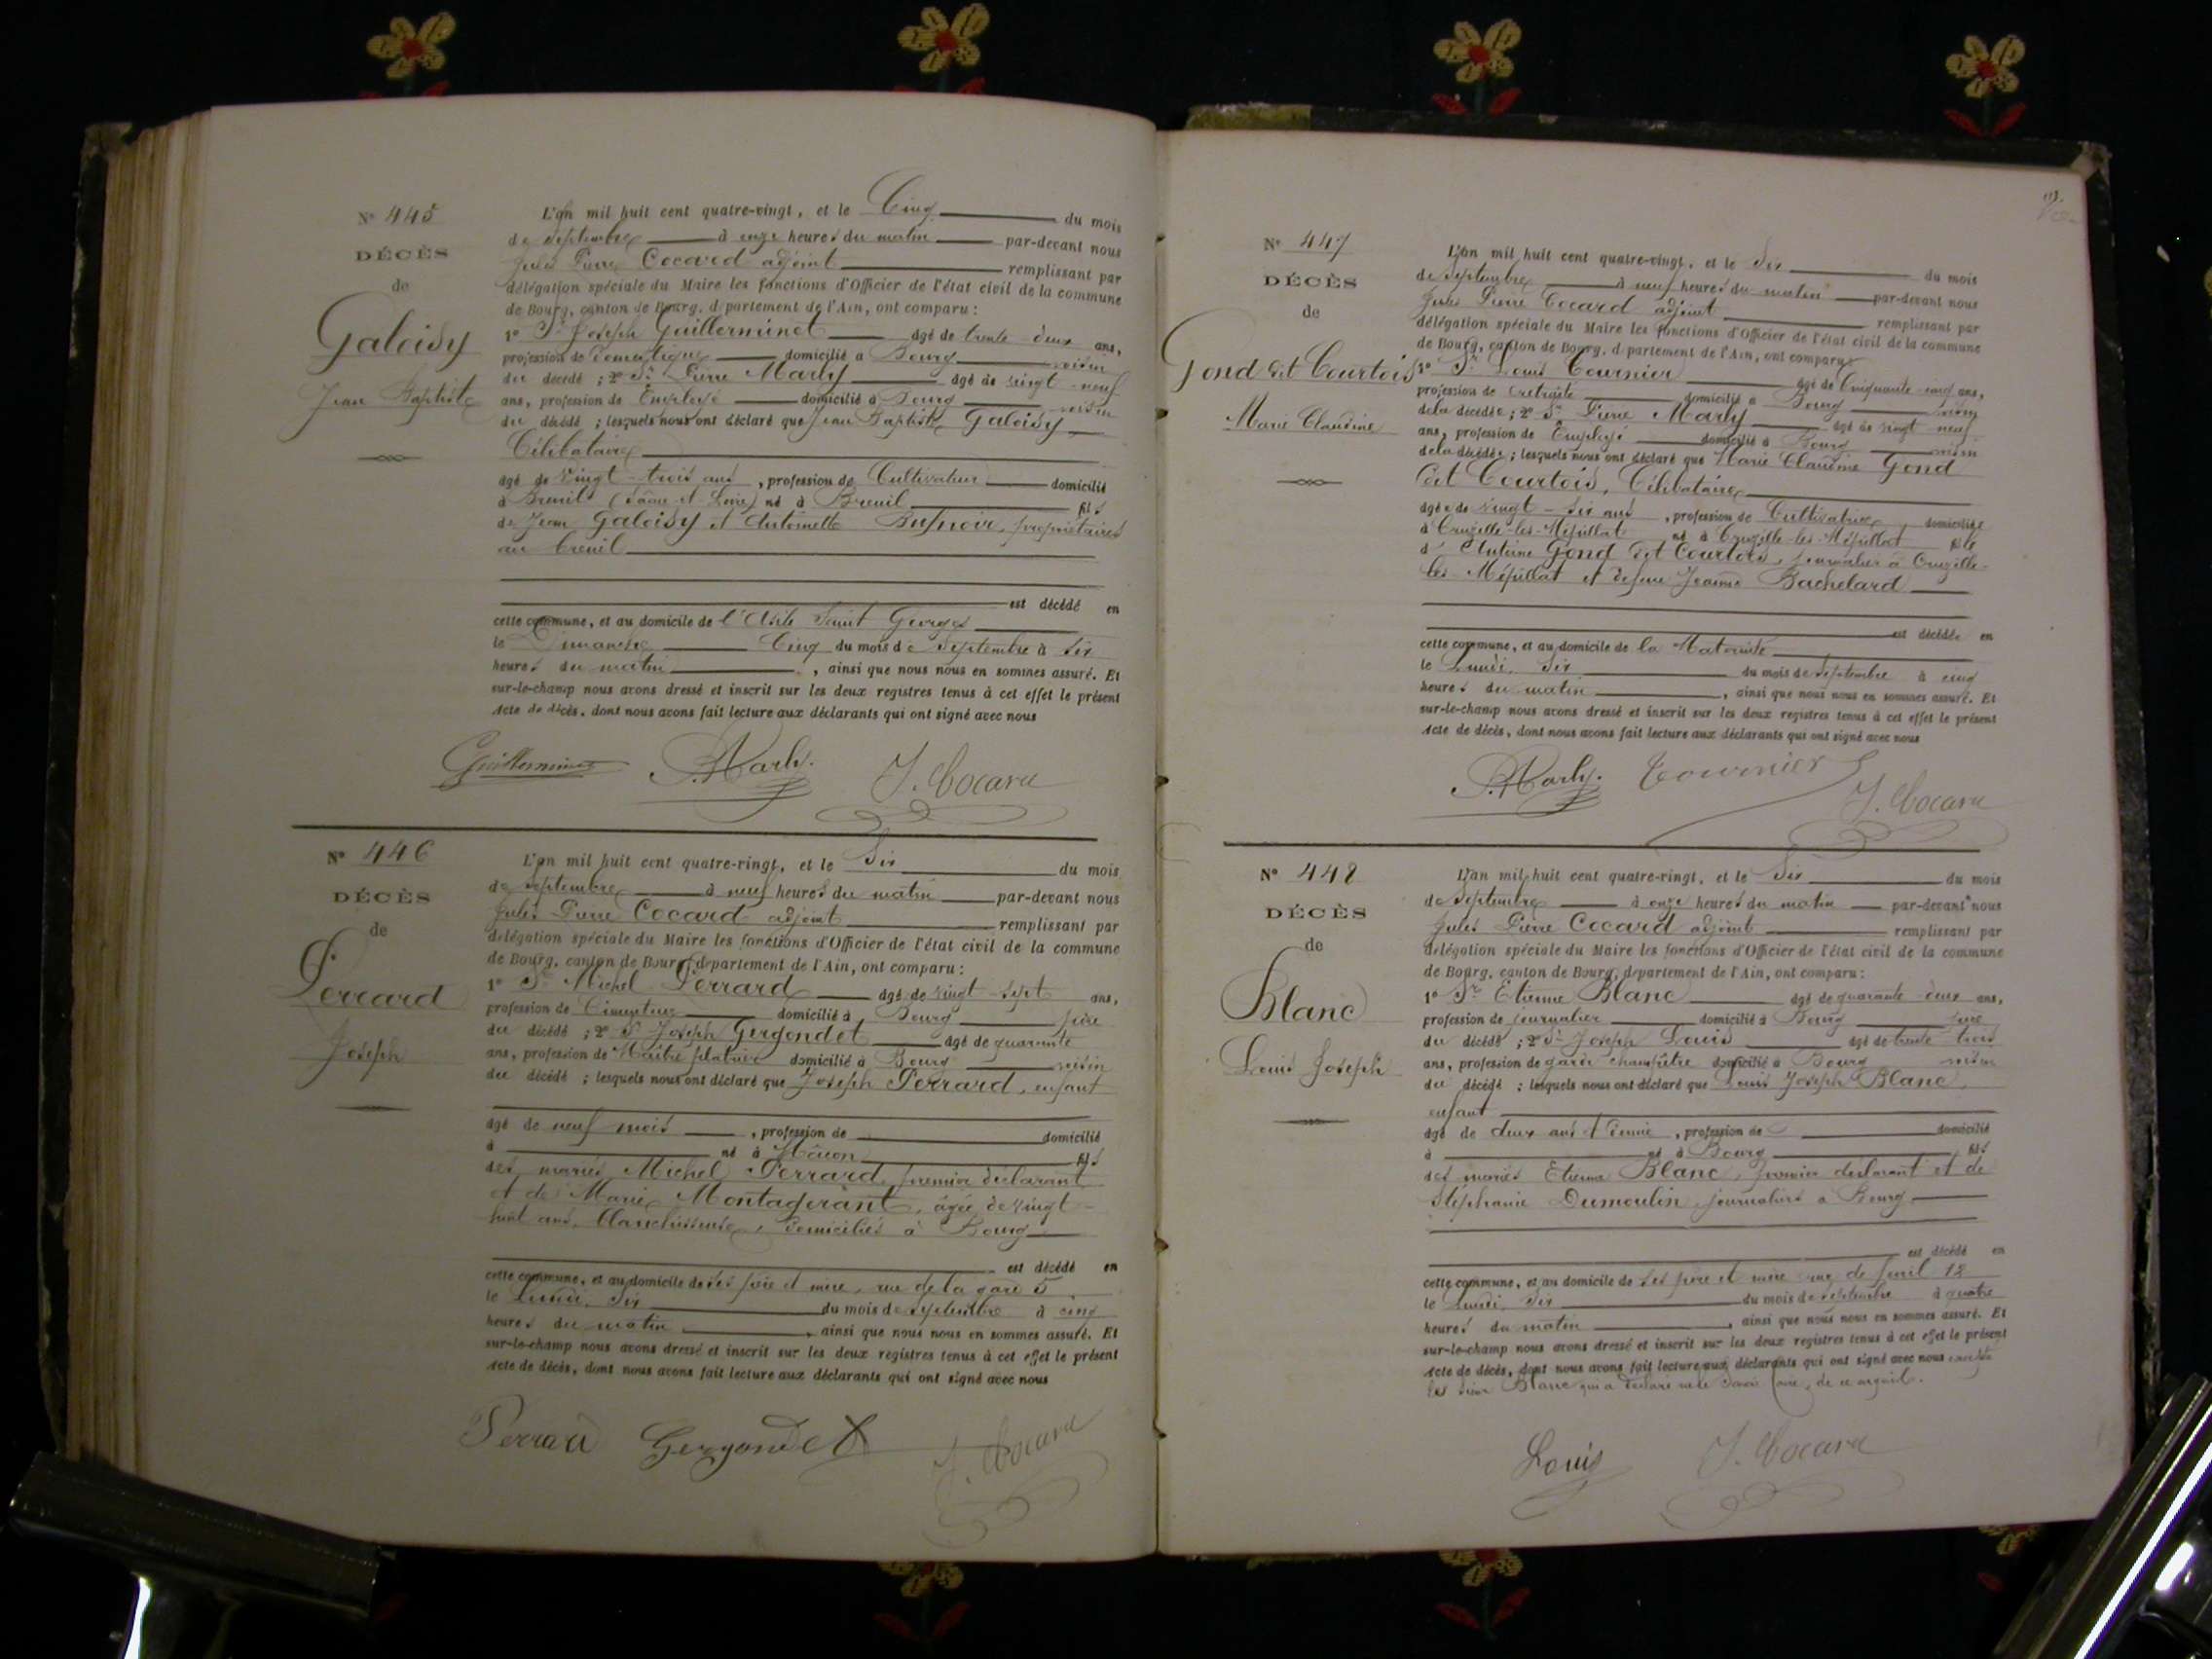 N° 445
DÉCÈS
de
Galoisy
Jean Baptiste
L'an mil huit cent quatre-vingt, et le Cinq du mois
de septembre à onze heures du matin par-devant nous
Jules Pierre Cocard adjoint remplissant par
délégation spéciale du Maire les fonctions d'Officier de l'état civil de la commune
de Bourg, canton de Bourg, département de l'Ain, ont comparu :
1° Sr Joseph Guillerminet âgé de trente-deux ans,
profession de Domestique domicilié à Bourg voisin
du décédé ; 2° Sr Pierre Marly âgé de vingt-neuf
ans, profession de Employé domicilié à Bourg voisin
du décédé ; lesquels nous ont déclaré que Jean Baptiste Galoisy
Célibataire
âgé de vingt-trois ans, profession de Cultivateur domicilié
à Breuil (Saône-et-Loire) né à Breuil fils
de Jean Galoisy et Antoinette Busnoir, propriétaires
au breuil
est décédé en
cette commune, et au domicile de l'Asile Saint Georges
le Dimanche Cinq du mois de Septembre à six
heures du matin, ainsi que nous nous en sommes assuré. Et
sur-le-champ nous avons dressé et inscrit sur les deux registres tenus à cet effet le présent
acte de décès, dont nous avons fait lecture aux déclarants qui ont signé avec nous
Guillerminet P. Marly. J. Cocard
N° 446
DÉCÈS
de
Perrard
Joseph
L'an mil huit cent quatre-vingt, et le Six du mois
de septembre à neuf heures du matin par-devant nous
Jules Pierre Cocard adjoint remplissant par
délégation spéciale du Maire les fonctions d'Officier de l'état civil de la commune
de Bourg, canton de Bourg, département de l'Ain, ont comparu :
1° Sr Michel Perrard âgé de vingt-sept ans,
profession de Cimentier domicilié à Bourg père
du décédé ; 2° Sr Joseph Gergondet âgé de quarante
ans, profession de Maître platrier domicilié à Bourg voisin
du décédé ; lesquels nous ont déclaré que Joseph Perrard, enfant
âgé de neuf mois, profession de domicilié
à né à Mâcon fils
des mariés Michel Perrard, premier déclarant
et de Marie Montagerant, âgée de vingt-
huit ans, blanchisseuse, domiciliés à Bourg
est décédé en
cette commune, et au domicile de ses père et mère, rue de la gare 5
le Lundi, Six du mois de septembre à cinq
heures du matin, ainsi que nous nous en sommes assuré. Et
sur-le-champ nous avons dressé et inscrit sur les deux registres tenus à cet effet le présent
acte de décès, dont nous avons fait lecture aux déclarants qui ont signé avec nous
Perrard Gergondet J. Cocard
N° 447
DÉCÈS
de
Gond dit Courtois
Marie Claudine
L'an mil huit cent quatre-vingt, et le Six du mois
de Septembre à neuf heures du matin par-devant nous
Jules Pierre Cocard adjoint remplissant par
délégation spéciale du Maire les fonctions d'Officier de l'état civil de la commune
de Bourg, canton de Bourg, département de l'Ain, ont comparu
1° Sr Louis Tournier âgé de Cinquante-cinq ans,
profession de retraité domicilié à Bourg voisin
de la décédée ; 2° Sr Pierre Marly âgé de vingt-neuf
ans, profession de Employé domicilié à Bourg voisin
de la décédée ; lesquels nous ont déclaré que Marie Claudine Gond
dit Courtois, Célibataire
âgée de vingt-six ans, profession de Cultivatrice domiciliée
à Cruzille-les-Mépillat né à Cruzille-les-Mépillat fille
d'Antoine Gond dit Courtois, journalier à Cruzille-
les-Mépillat et defunte Jeanne Bachelard
est décédée en
cette commune, et au domicile de la Maternité
le Lundi, Six du mois de septembre à cinq
heures du matin, ainsi que nous nous en sommes assuré. Et
sur-le-champ nous avons dressé et inscrit sur les deux registres tenus à cet effet le présent
acte de décès, dont nous avons fait lecture aux déclarants qui ont signé avec nous
P. Marly. Tournier J. Cocard
N° 448
DÉCÈS
de
Blanc
Louis Joseph
L'an mil huit cent quatre-vingt, et le Six du mois
de Septembre à onze heures du matin par-devant nous
Jules Pierre Cocard adjoint remplissant par
délégation spéciale du Maire les fonctions d'Officier de l'état civil de la commune
de Bourg, canton de Bourg, département de l'Ain, ont comparu :
1° Sr Etienne Blanc âgé de quarante-deux ans,
profession de journalier domicilié à Bourg père
du décédé ; 2° Sr Joseph Louis âgé de trente-trois
ans, profession de garde champêtre domicilié à Bourg voisin
du décédé ; lesquels nous ont déclaré que Louis Joseph Blanc,
enfant
âgé de deux ans et demie, profession de domicilié
à né à Bourg fils
des mariés Etienne Blanc, premier déclarant et de
Stéphanie Dumoulin, journaliers à Bourg
est décédé en
cette commune, et au domicile de ses père et mère rue de 12
le Lundi, Six du mois de septembre à quatre
heures du matin, ainsi que nous nous en sommes assuré. Et
sur-le-champ nous avons dressé et inscrit sur les deux registres tenus à cet effet le présent
acte de décès, dont nous avons fait lecture aux déclarants qui ont signé avec nous excepté
le sieur Blanc qui a déclaré ne le savoir faire, de ce
Louis J. Cocard